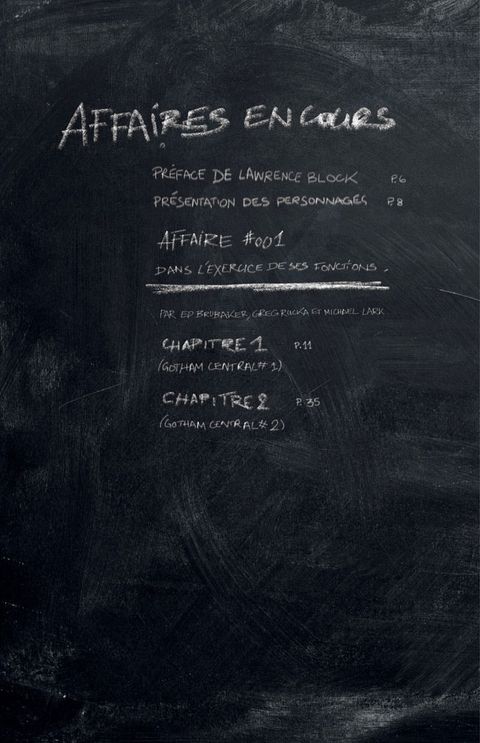 AFFAIRES EN COURS
PRÉFACE DE LAWRENCE BLOCK P.6
PRÉSENTATION DES PERSONNAGES P.8
AFFAIRE #001
DANS L'EXERCICE DE SES FONCTIONS.
PAR ED BRUBAKER, GREG RUCKA ET MICHAEL LARK
CHAPITRE 1 P.11
(GOTHAM CENTRAL #1)
CHAPITRE 2 P.35
(GOTHAM CENTRAL #2)